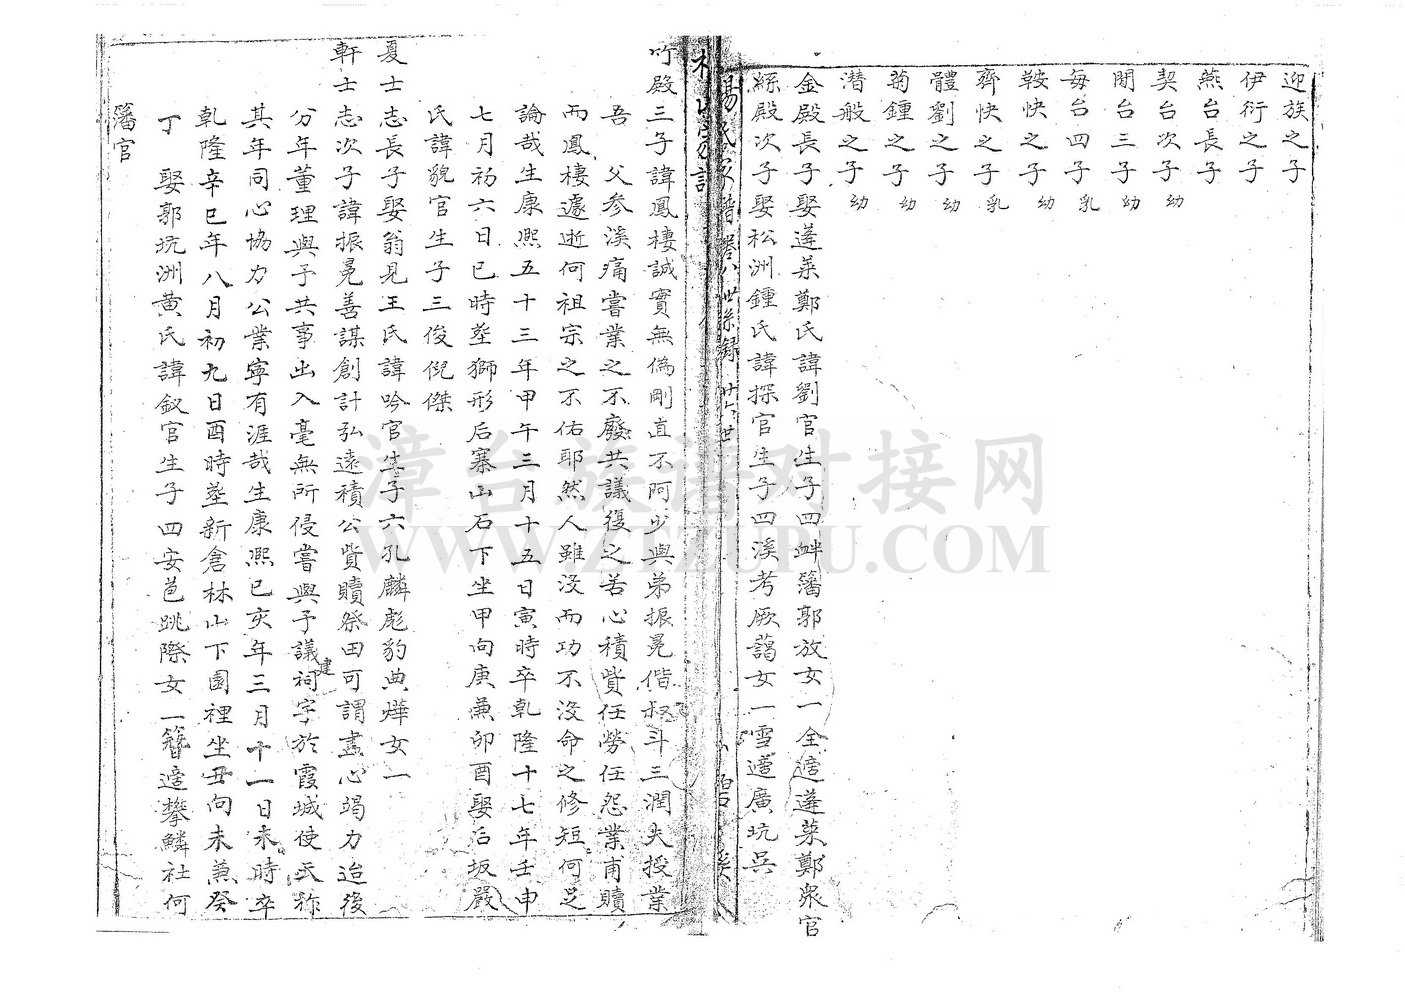 迎族之子
伊衍之子
燕台長子
契台次子 幼
閒台三子 幼
每台四子 乳
鞍快之子 幼
齊快之子 乳
體劉之子 幼
菊鍾之子 幼
潜般之子 幼
金殿長子娶蓬萊鄭氏諱劉官生子四衅籓郭放女一全適蓬萊鄭泉官
絲殿次子娶松洲鍾氏諱探官生子四溪考厥藹女一雪適廣坑吳
楊氏家譜卷八世系録 廿六世
竹殿三子諱鳳棲誠實無偽剛直不阿少與弟振冕偕叔斗三潤夫授業
吾 父參溪痛嘗業之不廢共議復之苦心積貲任勞任怨業甫贖
而鳳棲遽逝何祖宗之不佑耶然人雖没而功不没命之修短何足
論哉生康熙五十三年甲午三月十五日寅時卒乹隆十七年壬申
七月初六日巳時塟獅形后寨山石下坐甲向庚兼卯酉娶后坂嚴
氏諱貌官生子三俊倪傑
夏士志長子娶翁見王氏諱吟官生子六孔麟彪豹典燁女一
軒士志次子諱振冕善謀創計弘遠積公貲贖祭田可謂盡心竭力迨後
分年董理與予共事出入毫無所侵嘗與予議建祠宇於霞城使天祚
其年同心協力公業寧有涯哉生康熙己亥年三月十一日未時卒
乹隆辛巳年八月初九日酉時塟新倉林山下園裡坐丑向未兼癸
丁 娶郭坑洲黄氏諱釵官生子四安芭跳際女一簪適攀鱗社何
籓官
漳台族谱对接网
WWW.ZIZUPU.COM